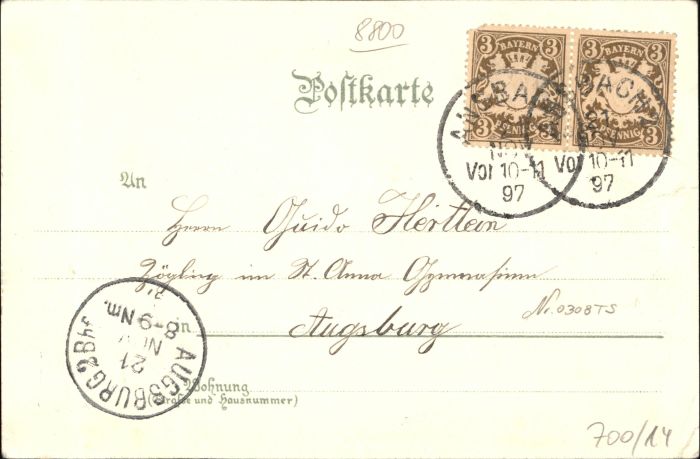 8800
3 BAYERN 3 3 BAYERN 3
3 PFENNIG 3 3 PFENNIG 3
Postkarte
ANSBACH
21
NOV
Vor 10-11
97
ANSBACH
21
NOV
Vor 10-11
97
An
Herrn Guido Hertlein
Zögling im St. Anna Gymnasium
No. 0308TS
in Augsburg
AUGSBURG 2 Bhf.
21
NOV
8-9 Nm.
Wohnung
(Straße und Hausnummer)
700/14